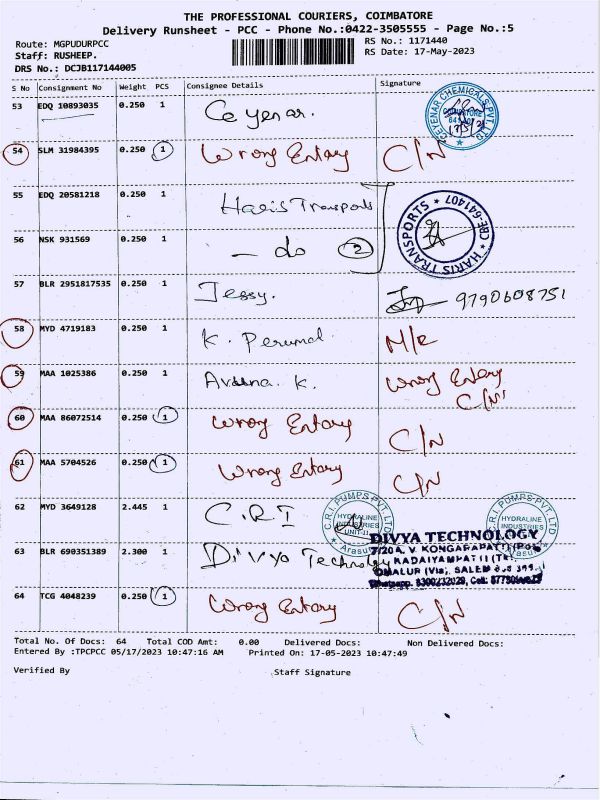 THE PROFESSIONAL COURIERS, COIMBATORE
Delivery Runsheet - PCC - Phone No.:0422-3505555 - Page No.:5
Route: MGPUDURPCC RS No.: 1171440
Staff: RUSHEEP. RS Date: 17-May-2023
DRS No.: DCJB117144005
S No Consignment No Weight PCS Consignee Details Signature
53 EDQ 10893035 0.250 1 Ceyenar.
CEYENAR CHEMICALS PVT. LTD
54 SLM 31984395 0.250 1 Wrong Entary C/N
55 EDQ 20581218 0.250 1 Haris Transports
HARIS TRANSPORTS * CBE-641407 *
56 NSK 931569 0.250 1 - do 2
57 BLR 2951817535 0.250 1 Jessy. 9790608751
58 MYD 4719183 0.250 1 K. Perumal N/R
59 MAA 1025386 0.250 1 K. Wrong Entary
C/N
60 MAA 86072514 0.250 1 Wrong Entary C/N
61 MAA 5704526 0.250 1 Wrong Entary C/N
62 MYD 3649128 2.445 1 C.R.I
C.R.I. PUMPS PVT. LTD HYDRALINE INDUSTRIES UNIT-II
C.R.I. PUMPS PVT. LTD HYDRALINE INDUSTRIES
63 BLR 690351389 2.300 1 Divya Technology
DIVYA TECHNOLOGY
7/20A, V. KONGARAPATTI (Po),
KADAIYAMPATTI (Tk),
OMALUR (Via), SALEM
Whatsapp. 8300232029, Cell:
64 TCG 4048239 0.250 1 Wrong Entary C/N
Total No. Of Docs: 64 Total COD Amt: 0.00 Delivered Docs: Non Delivered Docs:
Entered By :TPCPCC 05/17/2023 10:47:16 AM Printed On: 17-05-2023 10:47:49
Verified By Staff Signature